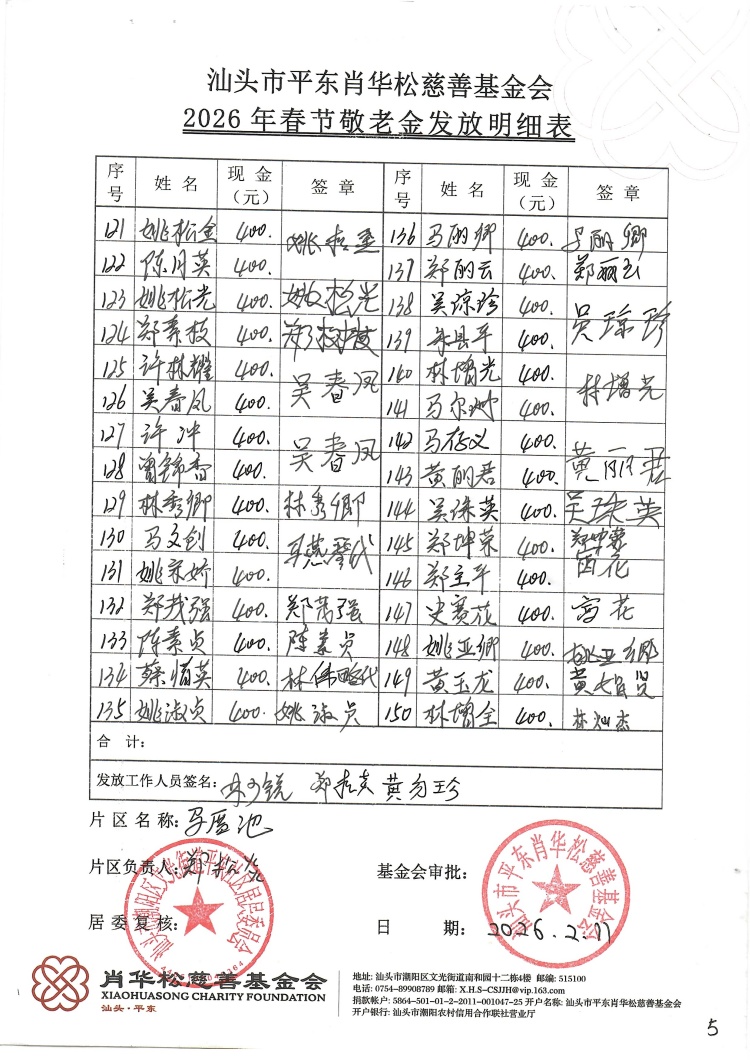 汕头市平东肖华松慈善基金会
2026年春节敬老金发放明细表
序号 姓名 现金（元） 签章 序号 姓名 现金（元） 签章
121 姚松金 400. 136 马丽卿 400. 马丽卿
122 陈月英 400. 137 郑丽云 400. 郑丽云
123 姚松光 400. 姚松光 138 吴琼珍 400. 吴琼珍
124 郑素枝 400. 139 400.
125 许林耀 400. 吴春凤 140 林增光 400. 林增光
126 吴春凤 400. 141 400.
127 许冲 400. 吴春凤 142 马存义 400.
128 曾锦香 400. 143 黄丽君 400. 黄丽君
129 林秀卿 400. 林秀卿 144 吴珠英 400. 吴珠英
130 马文创 400. 145 郑坤荣 400. 郑坤荣
131 400. 146 400.
132 郑茂强 400. 郑茂强 147 史赛花 400.
133 陈素贞 400. 陈素贞 148 姚亚卿 400. 姚亚卿
134 400. 149 黄玉龙 400.
135 姚淑贞 400. 姚淑贞 150 林增全 400. 林灿杰
合计：
发放工作人员签名：
片区名称：
片区负责人：
基金会审批：
居委复核：
日期：2026.2.11
汕头市平东肖华松慈善基金会
肖华松慈善基金会
XIAOHUASONG CHARITY FOUNDATION
汕头·平东
地址: 汕头市潮阳区文光街道南和园十二栋4楼 邮编: 515100
电话: 0754-89908789 邮箱: X.H.S-CSJJH@vip.163.com
捐款帐户: 5864-501-01-2-2011-001047-25 开户名称: 汕头市平东肖华松慈善基金会
开户银行: 汕头市潮阳农村信用合作联社营业厅
5